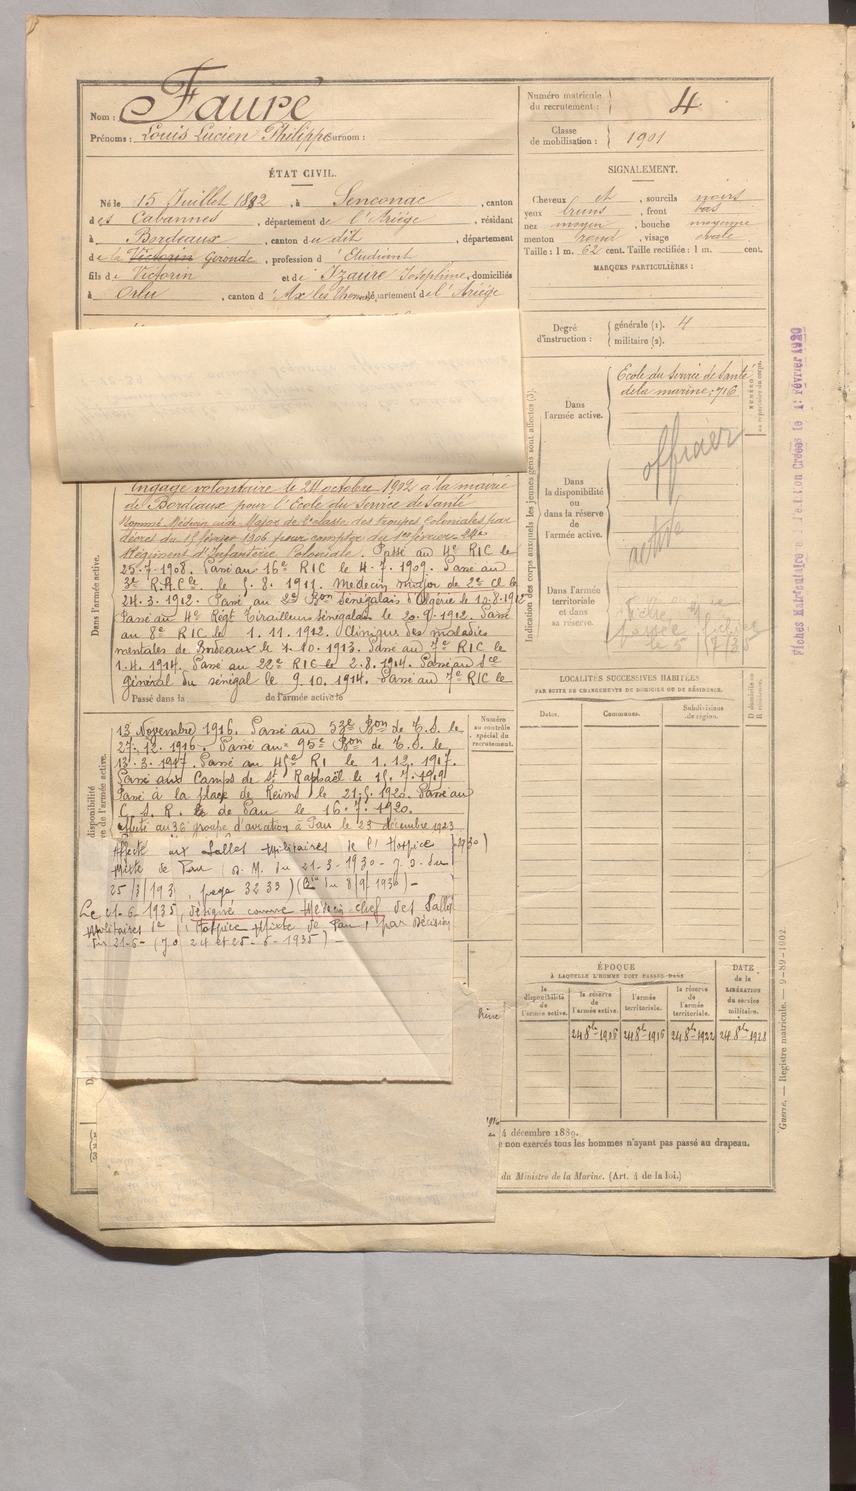 Nom : Fauré
Prénoms : Louis Lucien Philippe Surnom :
ÉTAT CIVIL.
Né le 15 Juillet 1882, à Senconac, canton
des Cabannes, département de l'Ariège, résidant
à Bordeaux, canton du dit, département
de la Victorin Gironde, profession d'Etudiant
fils de Victorin et de Izaure Joséphine, domiciliés
à Orlu, canton d'Ax les Thermes, département de l'Ariège
Numéro matricule
du recrutement : 4
Classe
de mobilisation : 1901
SIGNALEMENT.
Cheveux et, sourcils noirs
yeux bruns, front bas
nez moyen, bouche moyenne
menton rond, visage ovale
Taille : 1 m. 62 cent. Taille rectifiée : 1 m. cent.
MARQUES PARTICULIÈRES :
Degré
d'instruction :
générale (1). 4
militaire (2).
Indication des corps auxquels les jeunes gens sont affectés (3).
Dans
l'armée active.
Ecole du Service de Santé
de la marine : 716
NUMÉRO
au répertoire du corps.
Dans
la disponibilité
ou
dans la réserve
de
l'armée active.
officier
active
Dans l'armée
territoriale
et dans
sa réserve.
le 5
Fiches Matriculaire Création Créées le 1er février 1920
Dans l'armée active.
Engagé volontaire le 24 octobre 1902 à la mairie
de Bordeaux pour l'Ecole du Service de Santé
Nommé Médecin aide Major de 2e classe des troupes coloniales par
décret du 15 février 1906 pour compter du 1er février 24e
Régiment d'Infanterie Coloniale. Passé au 4e RIC le
25-7-1908. Passé au 16e RIC le 4-7-1909. Passé au
3e R.A.Cle le 5.8.1911. Médecin major de 2e Cl le
24.3.1912. Passé au 2e Bon Sénégalais d'Algérie le 10.8.1912
Passé au 4e Régt Tirailleurs Sénégalais le 20.9.1912. Passé
au 8e RIC le 1.11.1912. Clinique des maladies
mentales de Bordeaux le 1.10.1913. Passé au 7e RIC le
1.4.1914. Passé au 22e RIC le 2.8.1914. Passé au Sce
Général du Sénégal le 9.10.1914. Passé au 7e RIC le
Passé dans la de l'armée active le
disponibilité
ve de l'armée active.
Numéro
au contrôle
spécial du
recrutement.
13 Novembre 1916. Passé au 53e Bon de T.S. le
27.12.1916. Passé au 95e Bon de T.S. le
13.3.1917. Passé au 45e RI le 1.12.1917.
Passé aux Camps de St Raphaël le 15.7.1919
Passé à la place de Reims le 21.5.1920. Passé au
C.S.R. de Pau le 16.7.1920.
Affecté au 36e groupe d'aviation à Pau le 25 décembre 1923
Affecté aux Salles Militaires de l'Hospice
Mixte de Pau (D.M. du 21-3-1930 - J.O. du
25/3/193, page 3233) (Cre du 8/9/1930) -
Le 21-6-1935, désigné comme Médecin chef des Salles
Militaires de l'Hospice Mixte de Pau, par Décision
du 21-6- (J.O. 24 et 25-6-1935) -
LOCALITÉS SUCCESSIVES HABITÉES
PAR SUITE DE CHANGEMENTS DE DOMICILE OU DE RÉSIDENCE.
Dates. Communes. Subdivisions
de région.
D domicile ou
R résidence.
ÉPOQUE
À LAQUELLE L'HOMME DOIT PASSER DANS
la
disponibilité
de
l'armée active.
la réserve
de
l'armée active.
l'armée
territoriale.
la réserve
de
l'armée
territoriale.
DATE
de la
LIBÉRATION
du service
militaire.
24 8bre 1905 24 8bre 1915 24 8bre 1922 24 8bre 1928
4 décembre 1889.
e non exercés tous les hommes n'ayant pas passé au drapeau.
du Ministre de la Marine. (Art. 4 de la loi.)
Guerre. — Registre matricule. — 9-89-1902.